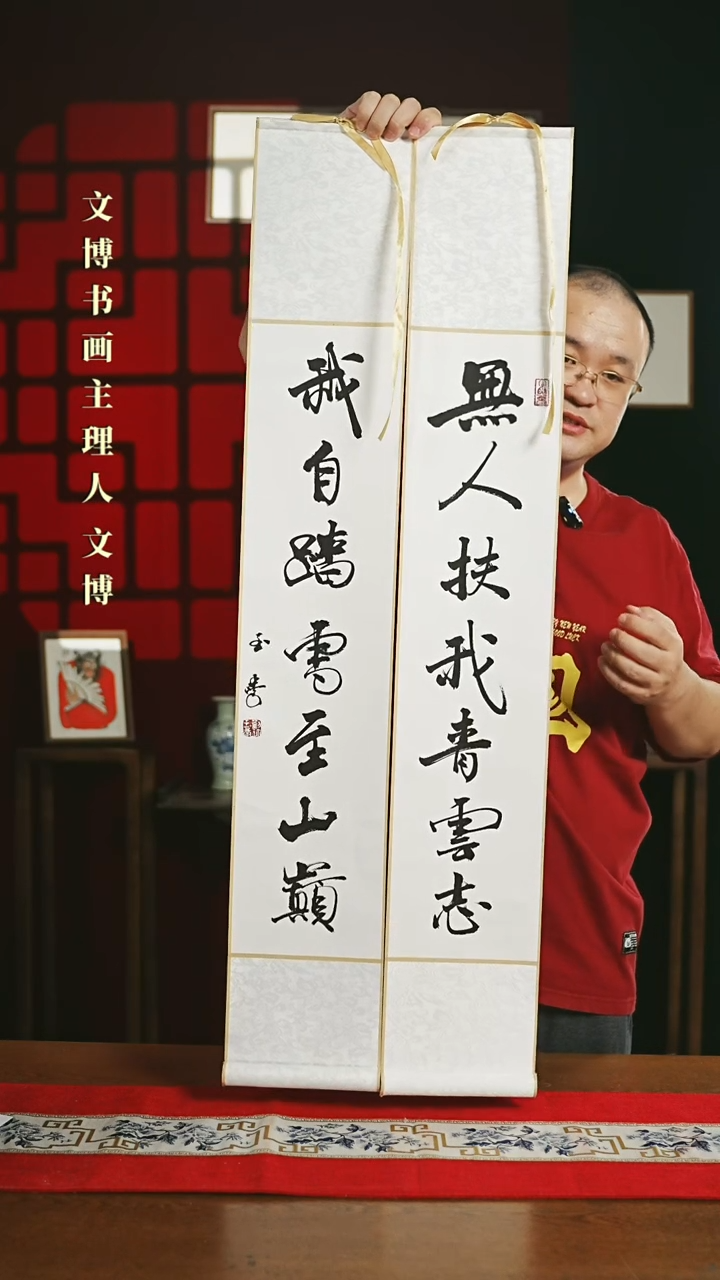 文博书画主理人 文博
無人扶我青雲志
我自踏雪至山巔